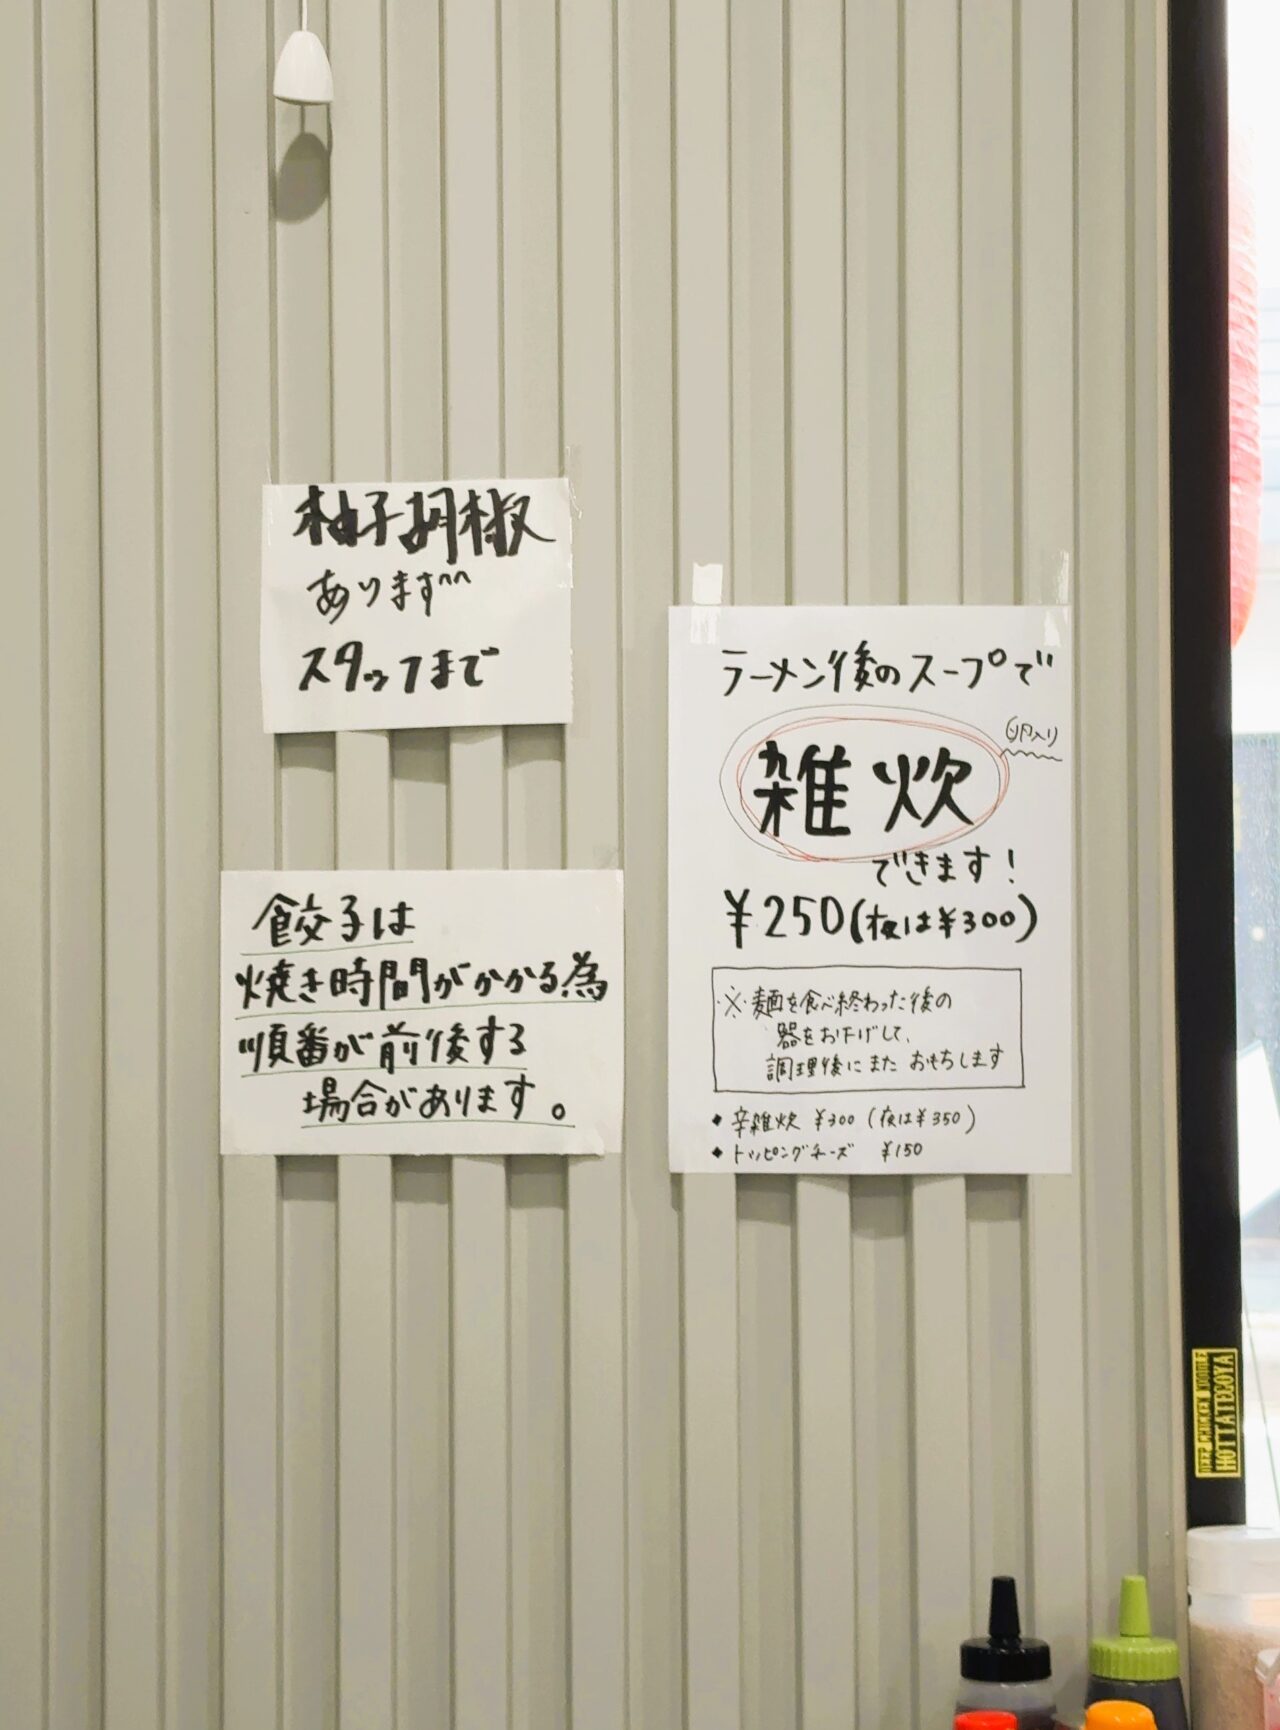 柚子胡椒
あります^^
スタッフまで
餃子は
焼き時間がかかる為
順番が前後する
場合があります。
ラーメン後のスープで
卵入り
雑炊
できます!
¥250(夜は¥300)
※麺を食べ終わった後の
器をお下げして、
調理後にまたおもちします
◆辛雑炊 ¥300(夜は¥350)
◆トッピングチーズ ¥150
DEEP CHICKEN NOODLE
HOTTATEGOYA